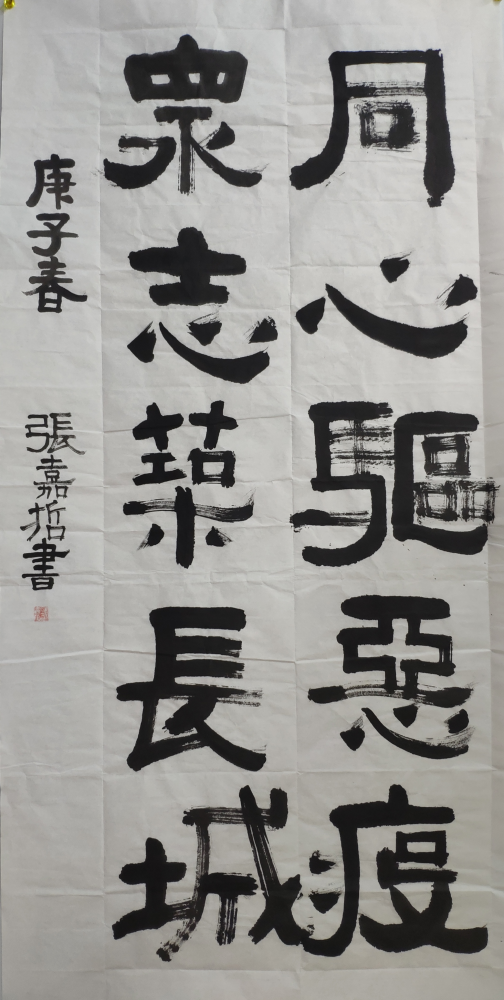 同心驅惡疫
眾志築長城
庚子春 張嘉哲書